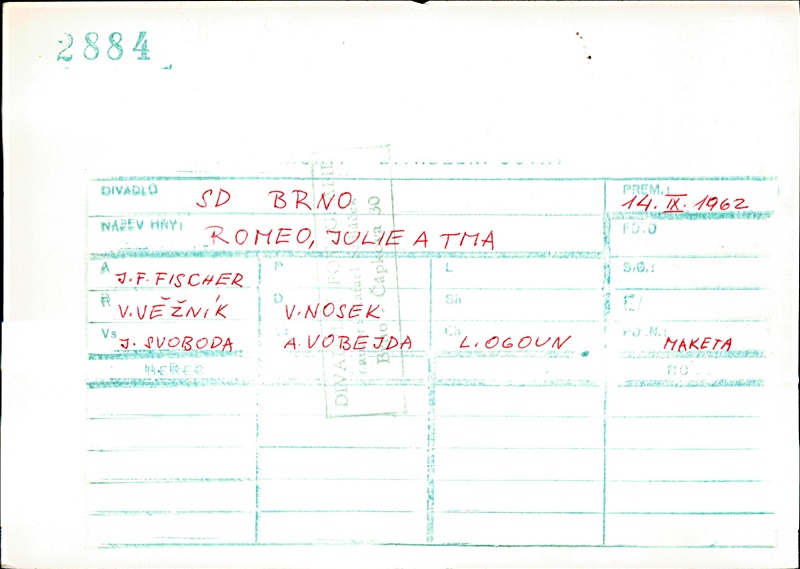 2884
DIVADLO SD BRNO PREM.: 14. IX. 1962
NÁZEV HRY: ROMEO, JULIE A TMA
A J.F. FISCHER P L
R V. VĚŽNÍK D V. NOSEK Sb
Vs J. SVOBODA A. VOBEJDA Ch L. OGOUN MAKETA
HEREC
Brno, Čápkova 30